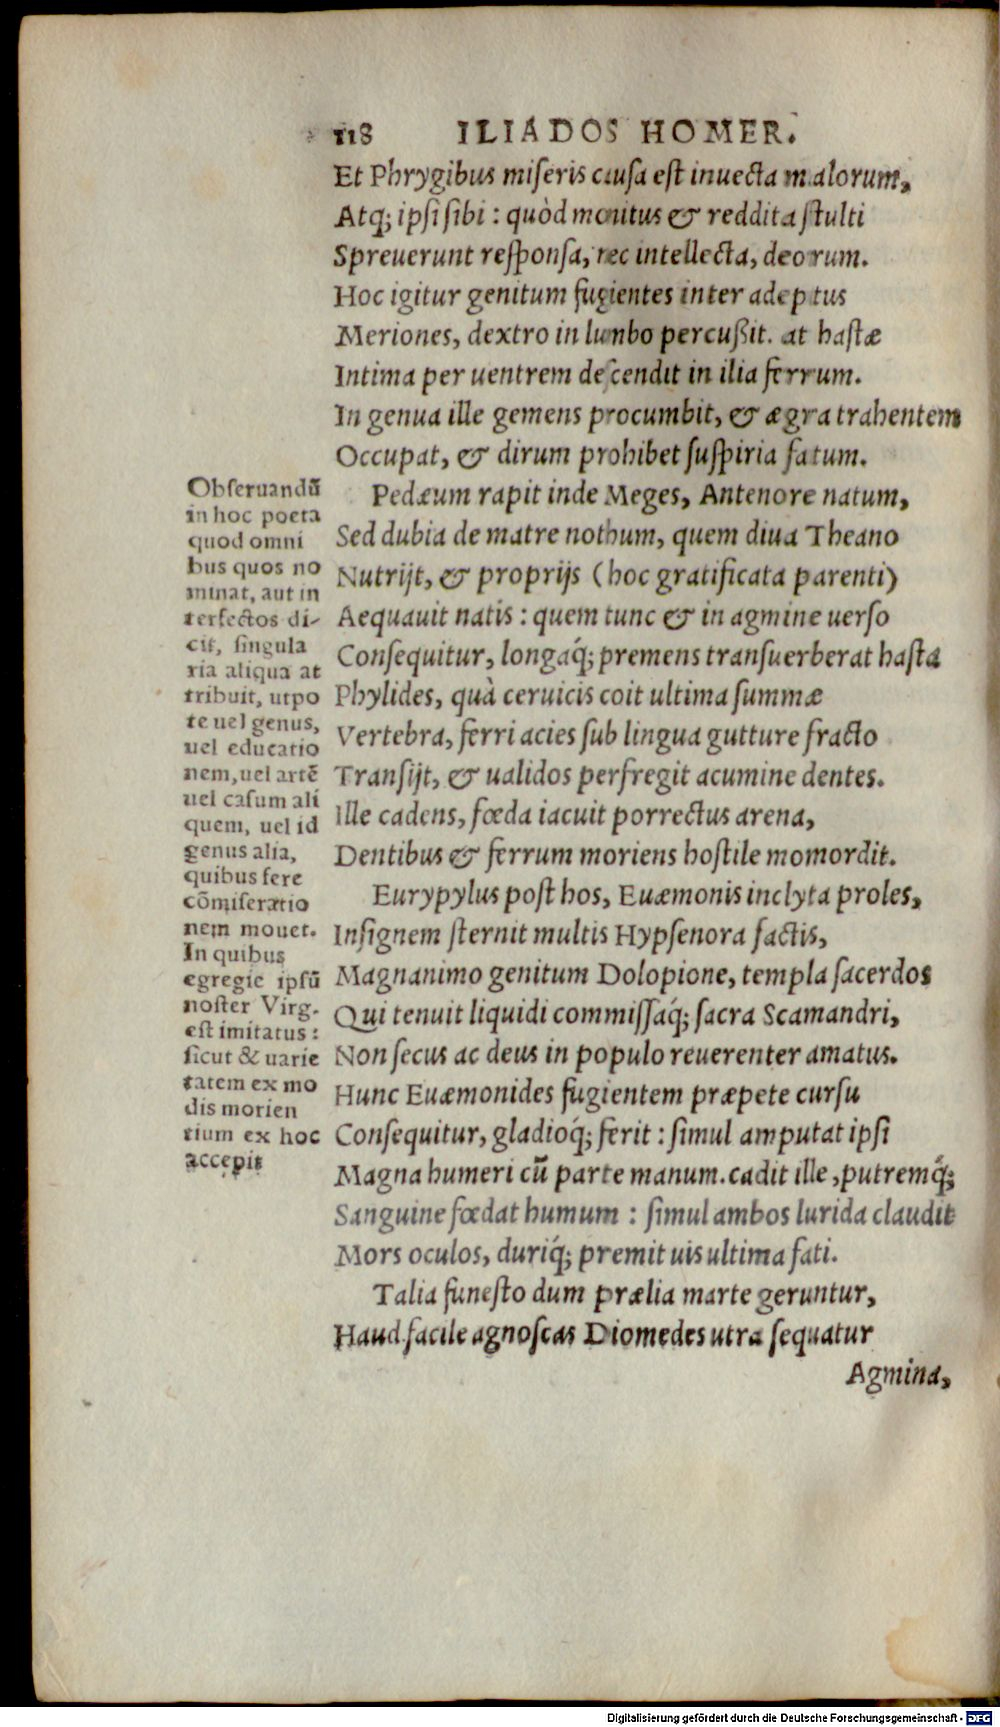 118 ILIADOS HOMER.
Et Phrygibus miseris causa est inuecta malorum,
Atq; ipsi sibi : quòd monitus & reddita stulti
Spreuerunt responsa, nec intellecta, deorum.
Hoc igitur genitum fugientes inter adeptus
Meriones, dextro in lumbo percußit. at hastæ
Intima per uentrem descendit in ilia ferrum.
In genua ille gemens procumbit, & ægra trahentem
Occupat, & dirum prohibet suspiria fatum.
Pedæum rapit inde Meges, Antenore natum,
Sed dubia de matre nothum, quem diua Theano
Nutrijt, & proprijs (hoc gratificata parenti)
Aequauit natis : quem tunc & in agmine uerso
Consequitur, longaq́; premens transuerberat hasta
Phylides, quà ceruicis coit ultima summæ
Vertebra, ferri acies sub lingua gutture fracto
Transijt, & ualidos perfregit acumine dentes.
Ille cadens, fœda iacuit porrectus arena,
Dentibus & ferrum moriens hostile momordit.
Eurypylus post hos, Euæmonis inclyta proles,
Insignem sternit multis Hypsenora factis,
Magnanimo genitum Dolopione, templa sacerdos
Qui tenuit liquidi commissaq́; sacra Scamandri,
Non secus ac deus in populo reuerenter amatus.
Hunc Euæmonides fugientem præpete cursu
Consequitur, gladioq́; ferit : simul amputat ipsi
Magna humeri cū parte manum. cadit ille, putremq́;
Sanguine fœdat humum : simul ambos lurida claudit
Mors oculos, duriq́; premit uis ultima fati.
Talia funesto dum prælia marte geruntur,
Haud facile agnoscas Diomedes utra sequatur
Agmina,
Obseruandū
in hoc poeta
quod omni
bus quos no
minat, aut in
terfectos di-
cit, singula
ria aliqua at
tribuit, utpo
te uel genus,
uel educatio
nem, uel artē
uel casum ali
quem, uel id
genus alia,
quibus fere
cōmiseratio
nem mouet.
In quibus
egregie ipsū
noster Virg.
est imitatus :
sicut & uarie
tatem ex mo
dis morien
tium ex hoc
accepit
Digitalisierung gefördert durch die Deutsche Forschungsgemeinschaft - DFG